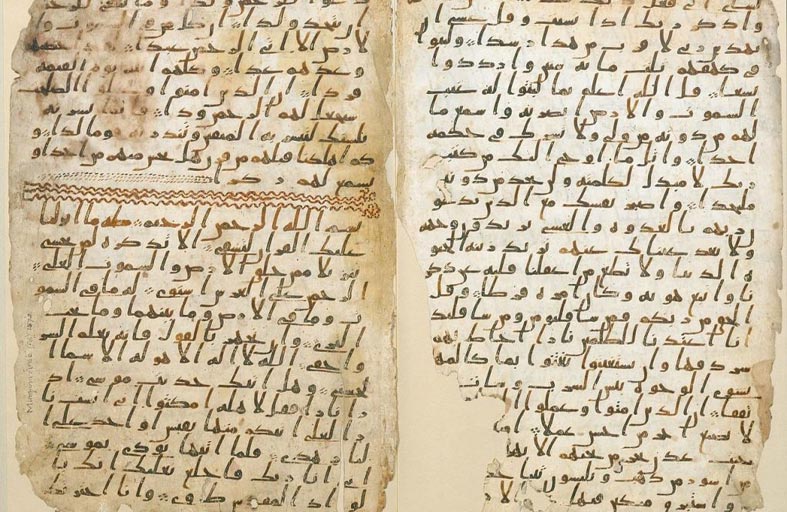 واذكر ربك اذا نسيت وقل عسى ا
يهدين ربي لاقرب من هذا رشدا ولبثوا
في كهفهم ثلث مائة سنين وازدادوا
تسعا قل الله اعلم بما لبثوا له غيب
السموت والارض ابصر به واسمع ما
لهم من دونه من ولي ولا يشرك في حكمه
احدا واتل ما اوحي اليك من كتب
ربك لا مبدل لكلمته ولن تجد من دونه
ملتحدا واصبر نفسك مع الذين يدعو
ن ربهم بالغدوة والعشي يريدون وجهه
ولا تعد عيناك عنهم تريد زينة الحيو
ة الدنيا ولا تطع من اغفلنا قلبه عن ذكر
نا واتبع هويه وكان امره فرطا وقل
الحق من ربكم فمن شا فليومن ومن شا فليكفر
انا اعتدنا للظلمين نارا احاط بهم
سردقها وان يستغيثوا يغثوا بما كالمهل
يشوي الوجوه بئس الشرب وسات
تفقا ان الذين امنوا وعملوا ا
لا نضيع اجر من احسن عملا
جنت عدن تجري من تحتهم الانه
من اسور من ذهب ويلبسون ثيبا خ
واستبر متكين فيها
ان يتخذ ولدا ان كل من في السموت و
الارض الا اتي الرحمن عبدا لقد احصيهم
وعدهم عدا وكلهم اتيه يوم القيمة
فردا ان الذين امنوا وعملوا الصلحت
سيجعل لهم الرحمن ودا فانما يسرنه
بلسنك لتبشر به المتقين وتنذر به قوما لدا و
كم اهلكنا قبلهم من قرن هل تحس منهم من احد او
تسمع لهم ركزا
بسم الله الرحمن الرحيم طه ما انزلنا
عليك القران لتشقى الا تذكرة لمن يخشى
تنزيلا ممن خلق الارض والسموت العلى
الرحمن على العرش استوى له ما في السمو
ت وما في الارض وما بينهما وما تحت
الثرى وان تجهر بالقول فانه يعلم السر
واخفى الله لا اله الا هو له الاسما ا
لحسنى وهل اتيك حديث موسى اذ
را نارا فقال لاهله امكثوا اني انست نا
را لعلي اتيكم منها بقبس او اجد على ا
لنار هدى فلما اتيها نودي يموسى
اني انا ربك فاخلع نعليك انك با
لواد المقدس طوى وانا اخترتك